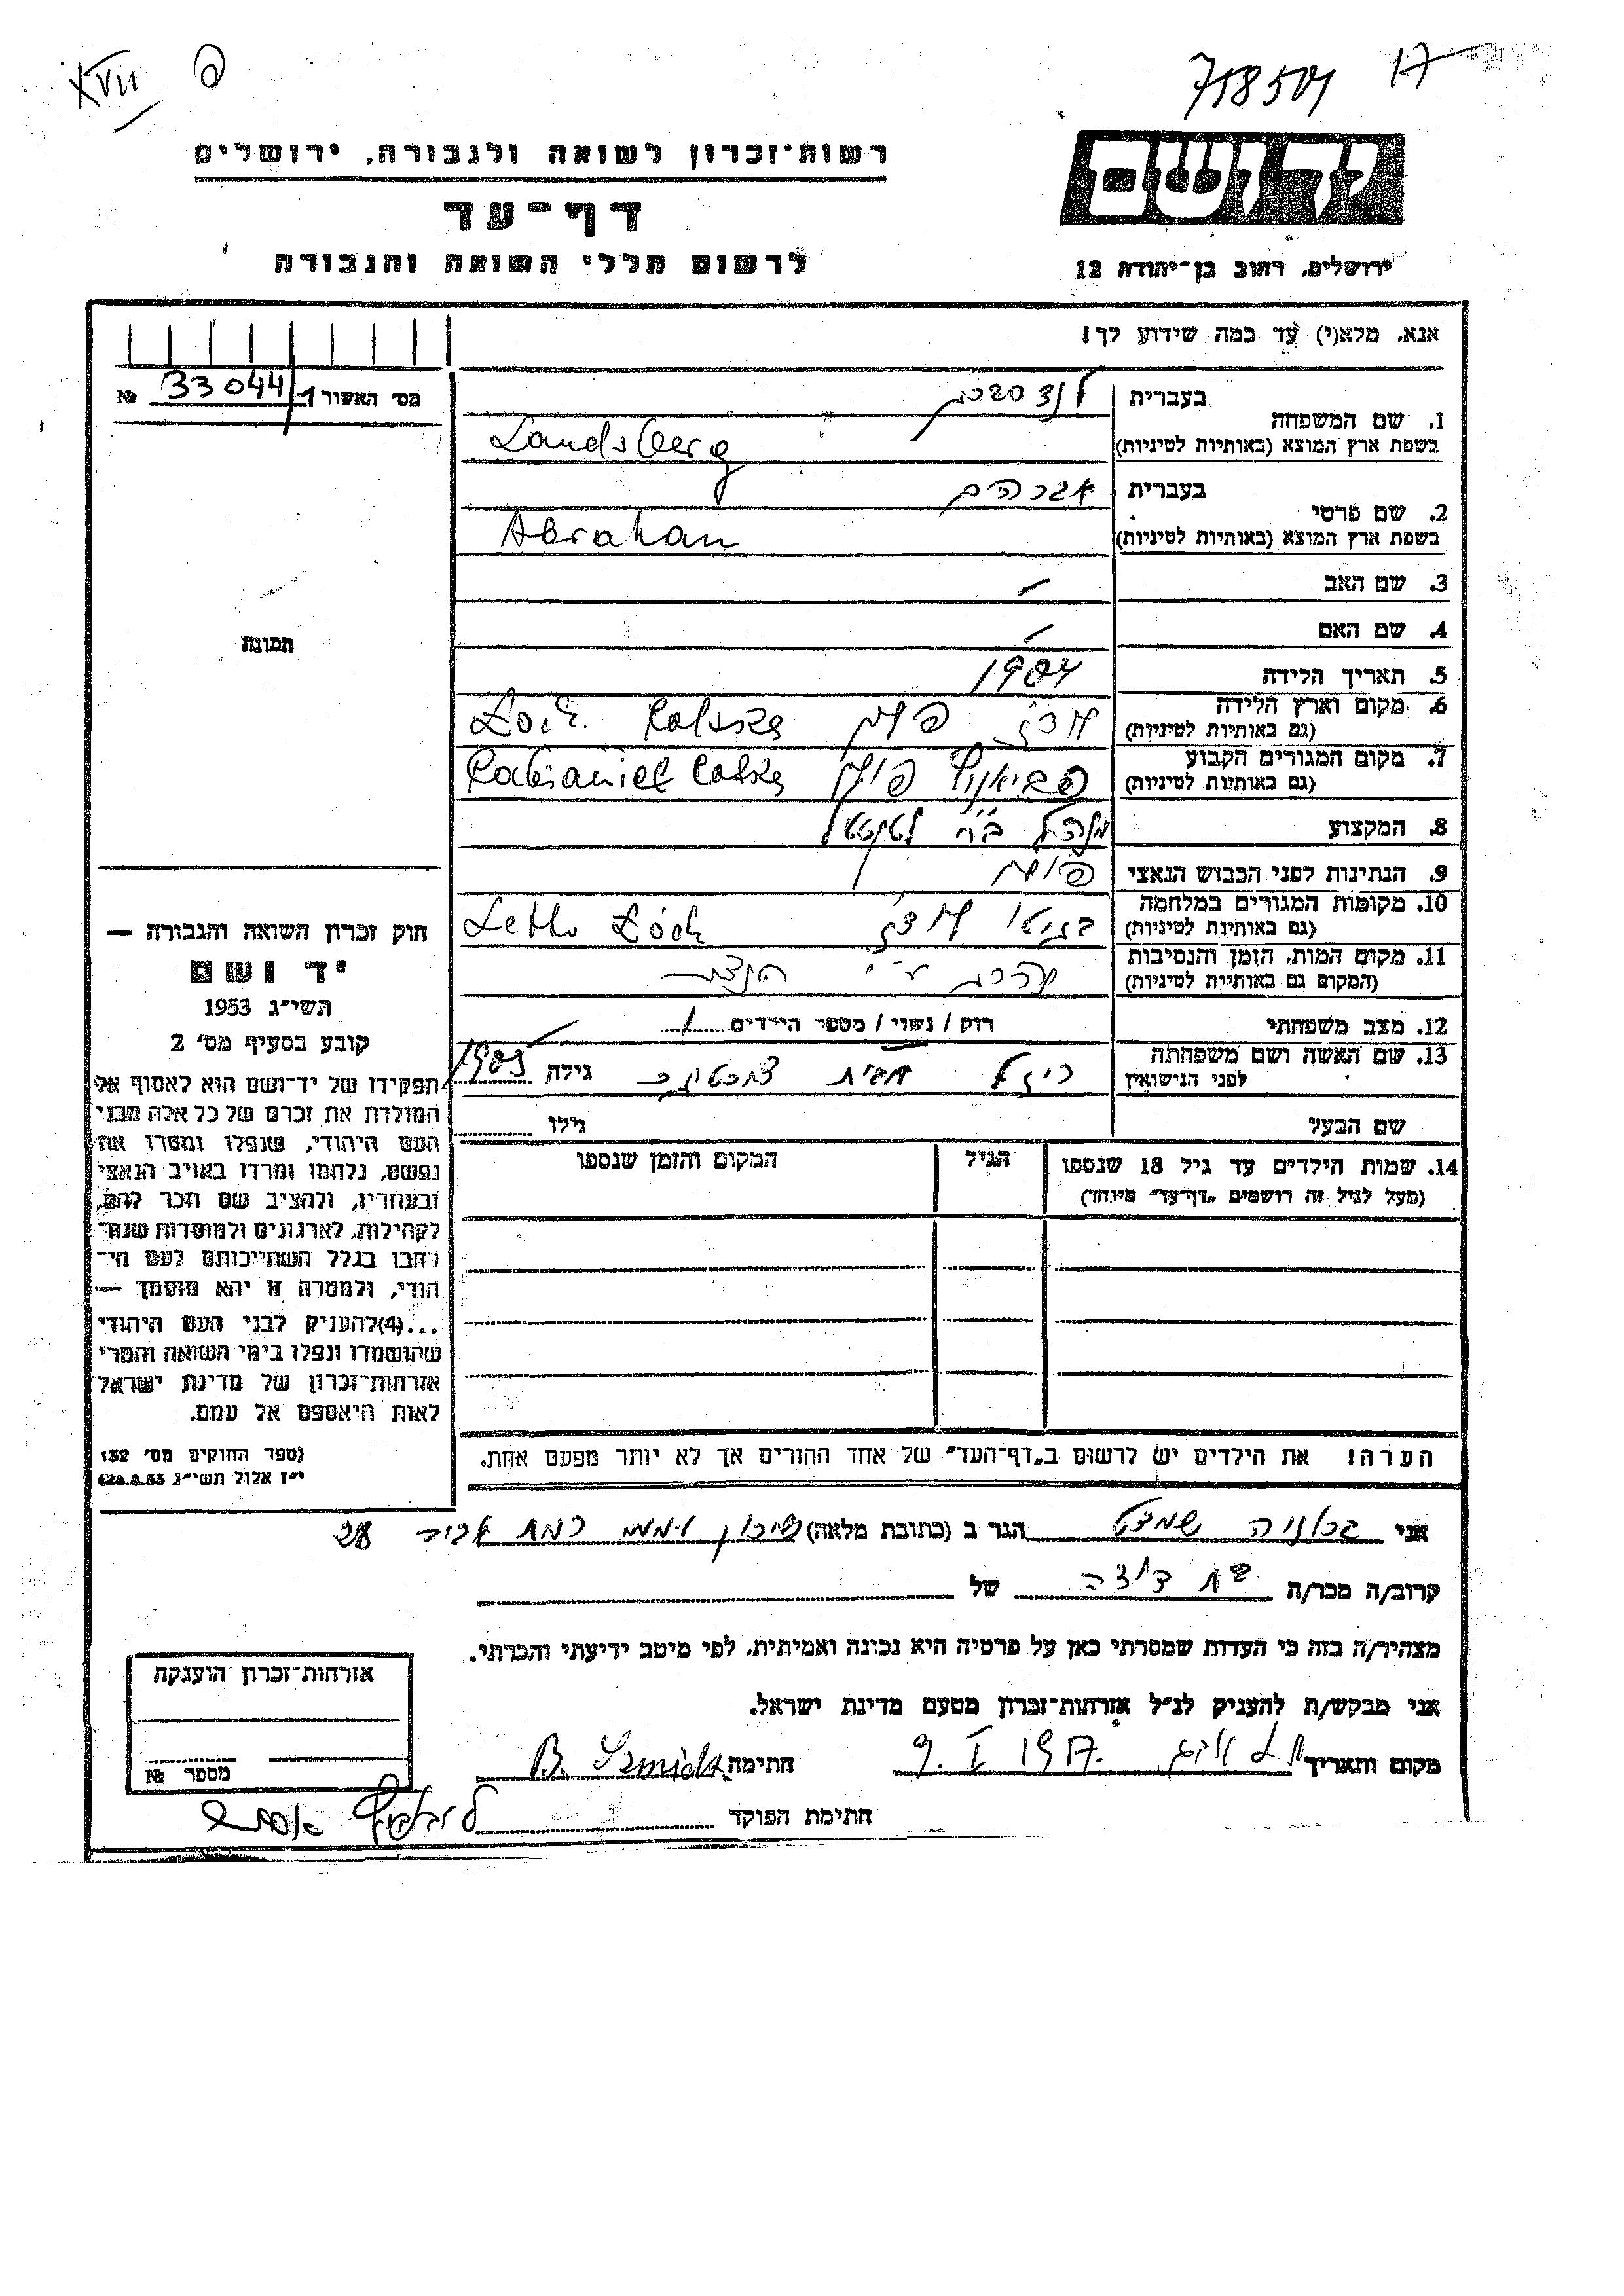 XVII פ
718501 17
רשות־זכרון לשואה ולגבורה, ירושלים
יד ושם
דף־עד
לרשום חללי השואה והגבורה
ירושלים, רחוב בן־יהודה 12
אנא, מלא(י) עד כמה שידוע לך!
מס׳ האשור 33044/1 №
1. שם המשפחה
בעברית לנדסברג
בשפת ארץ המוצא (באותיות לטיניות) Landsberg
2. שם פרטי
בעברית אברהם
בשפת ארץ המוצא (באותיות לטיניות) Abraham
3. שם האב –
4. שם האם –
תמונה
5. תאריך הלידה 1904
6. מקום וארץ הלידה לודז׳ פולין Łódź. Polska
(גם באותיות לטיניות)
7. מקום המגורים הקבוע פביאניץ פולין Pabianice Polska
(גם באותיות לטיניות)
8. המקצוע מנהל ביח״ר לטקסטיל
9. הנתינות לפני הכבוש הנאצי פולין
10. מקומות המגורים במלחמה בגיטו לודז׳ Łódź
(גם באותיות לטיניות)
11. מקום המות, הזמן והנסיבות נהרג ע״י הנצים
(המקום גם באותיות לטיניות)
12. מצב משפחתי רוק / נשוי / מספר הילדים 1
13. שם האשה ושם משפחתה
לפני הנישואין רייזל גילה 1905
שם הבעל גילו
14. שמות הילדים עד גיל 18 שנספו הגיל המקום והזמן שנספו
(מעל לגיל זה רושמים „דף־עד״ מיוחד)
הערה! את הילדים יש לרשום ב„דף־העד״ של אחד ההורים אך לא יותר מפעם אחת.
חוק זכרון השואה והגבורה —
יד ושם
תשי״ג 1953
קובע בסעיף מס׳ 2
תפקידו של יד־ושם הוא לאסוף אל
המולדת את זכרם של כל אלה מבני
העם היהודי, שנפלו ומסרו את
נפשם, נלחמו ומרדו באויב הנאצי
ובעוזריו, ולהציב שם וזכר להם,
לקהילות, לארגונים ולמוסדות שנח־
רבו בגלל השתייכותם לעם הי־
הודי, ולמטרה זו יהא מוסמך —
...(4)להעניק לבני העם היהודי
שהושמדו ונפלו בימי השואה והמרי
אזרחות־זכרון של מדינת ישראל
לאות היאספם אל עמם.
(ספר החוקים מס׳ 132
י״ז אלול תשי״ג 28.8.53)
אני ברוניה שמידט הגר ב (כתובת מלאה) שיכון ותמ״מ רמת אביב 28
קרוב/ה מכר/ה בת דודה של
מצהיר/ה בזה כי העדות שמסרתי כאן על פרטיה היא נכונה ואמיתית, לפי מיטב ידיעתי והכרתי.
אני מבקש/ת להעניק לנ״ל אזרחות־זכרון מטעם מדינת ישראל.
מקום ותאריך תל אביב 9. I 1957. חתימה B. Szmidt
חתימת הפוקד
אזרחות־זכרון הוענקה
מספר №